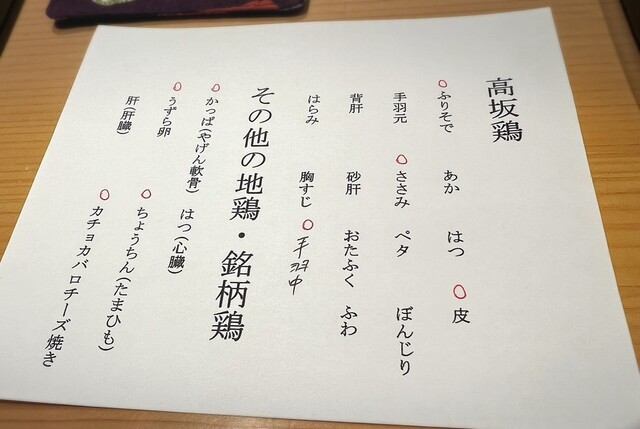 高坂鶏
○ふりそで　あか　はつ　○皮
手羽元　○ささみ　ペタ　ぼんじり
背肝　砂肝　おたふく　ふわ
はらみ　胸すじ　○手羽中
その他の地鶏・銘柄鶏
○かっぱ(やげん軟骨)　はつ(心臓)
○うずら卵　○ちょうちん(たまひも)
肝(肝臓)　○カチョカバロチーズ焼き